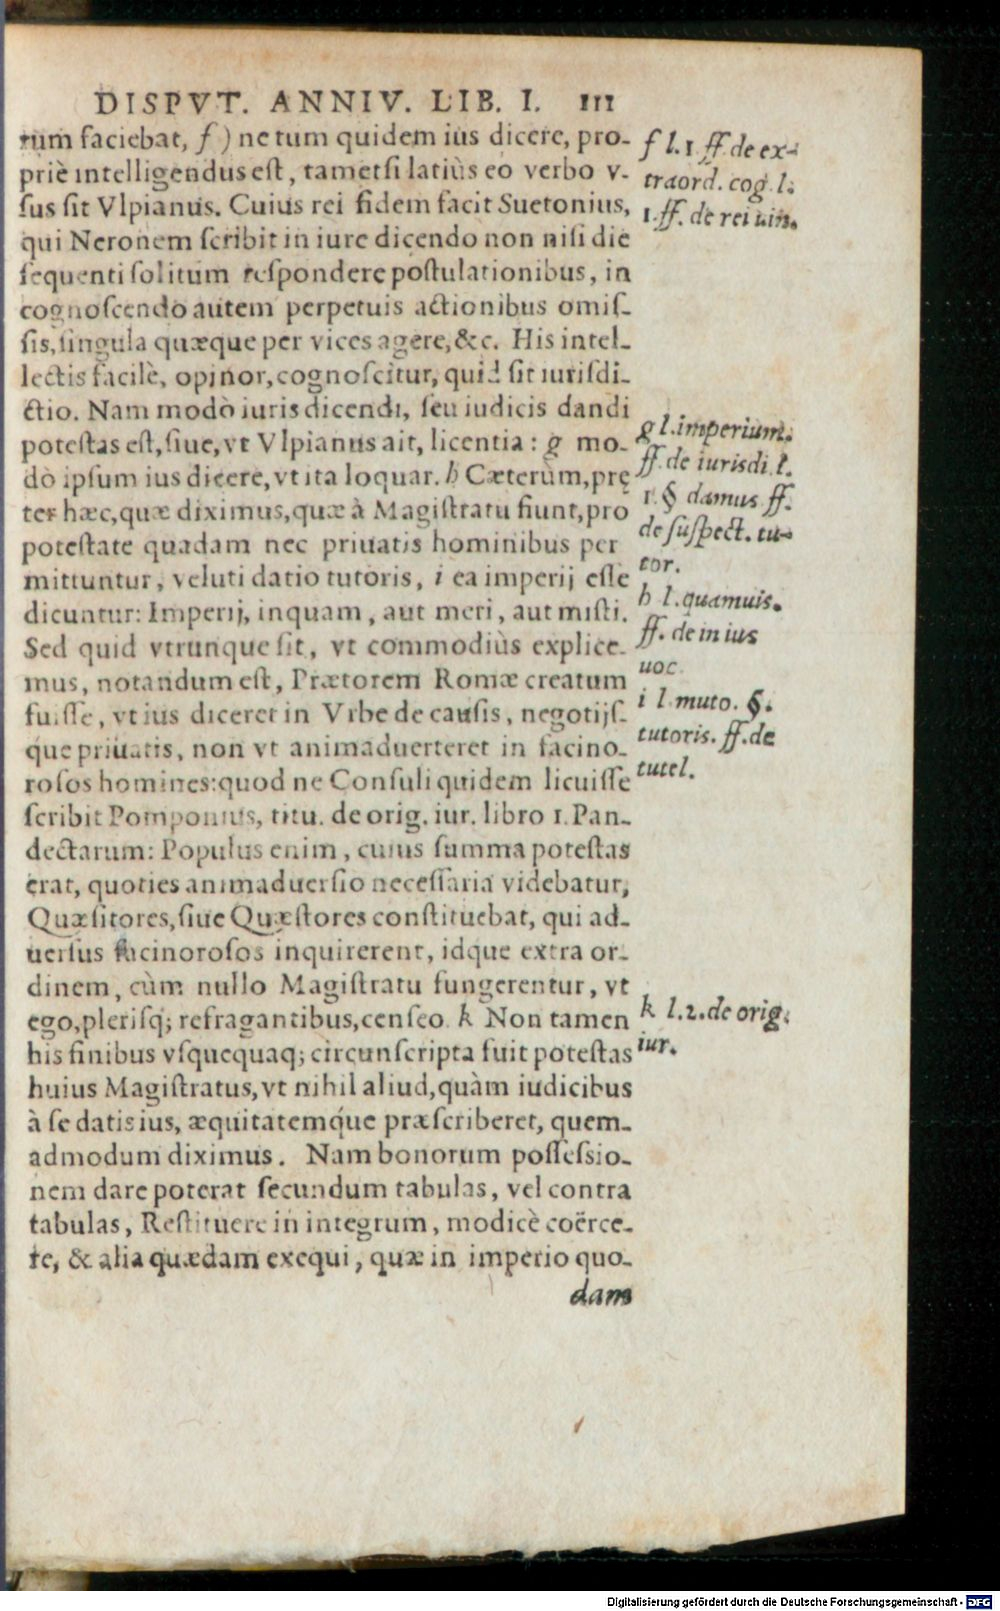 DISPVT. ANNIV. LIB. I. 111
rum faciebat, f) ne tum quidem ius dicere, pro-
priè intelligendus est, tametsi latiùs eo verbo v-
sus sit Vlpianus. Cuius rei fidem facit Suetonius,
qui Neronem scribit in iure dicendo non nisi die
sequenti solitum respondere postulationibus, in
cognoscendo autem perpetuis actionibus omis-
sis, singula quæque per vices agere, &c. His intel-
lectis facilè, opinor, cognoscitur, quid sit iurisdi-
ctio. Nam modò iuris dicendi, seu iudicis dandi
potestas est, siue, vt Vlpianus ait, licentia: g mo-
dò ipsum ius dicere, vt ita loquar. h Cæterùm, prę
ter hæc, quæ diximus, quæ à Magistratu fiunt, pro
potestate quadam nec priuatis hominibus per
mittuntur, veluti datio tutoris, i ea imperij esse
dicuntur: Imperij, inquam, aut meri, aut misti.
Sed quid vtrunque sit, vt commodiùs explice-
mus, notandum est, Prætorem Romæ creatum
fuisse, vt ius diceret in Vrbe de causis, negotijs-
que priuatis, non vt animaduerteret in facino-
rosos homines: quod ne Consuli quidem licuisse
scribit Pomponius, titu. de orig. iur. libro 1. Pan-
dectarum: Populus enim, cuius summa potestas
erat, quoties animaduersio necessaria videbatur,
Quæsitores, siue Quæstores constituebat, qui ad-
uersus facinorosos inquirerent, idque extra or-
dinem, cùm nullo Magistratu fungerentur, vt
ego, plerisq; refragantibus, censeo. k Non tamen
his finibus vsquequaq; circunscripta fuit potestas
huius Magistratus, vt nihil aliud, quàm iudicibus
à se datis ius, æquitatemq́ue præscriberet, quem-
admodum diximus. Nam bonorum possessio-
nem dare poterat secundum tabulas, vel contra
tabulas, Restituere in integrum, modicè coërce-
re, & alia quædam exequi, quæ in imperio quo-
dam
f l. 1. ff. de ex-
traord. cog. l.
1. ff. de rei uin.
g l. imperium.
ff. de iurisdi. l.
1. § damus ff.
de suspect. tu-
tor.
h l. quamuis.
ff. de in ius
uoc.
i l. muto. §.
tutoris. ff. de
tutel.
k l. 2. de orig.
iur.
Digitalisierung gefördert durch die Deutsche Forschungsgemeinschaft - DFG